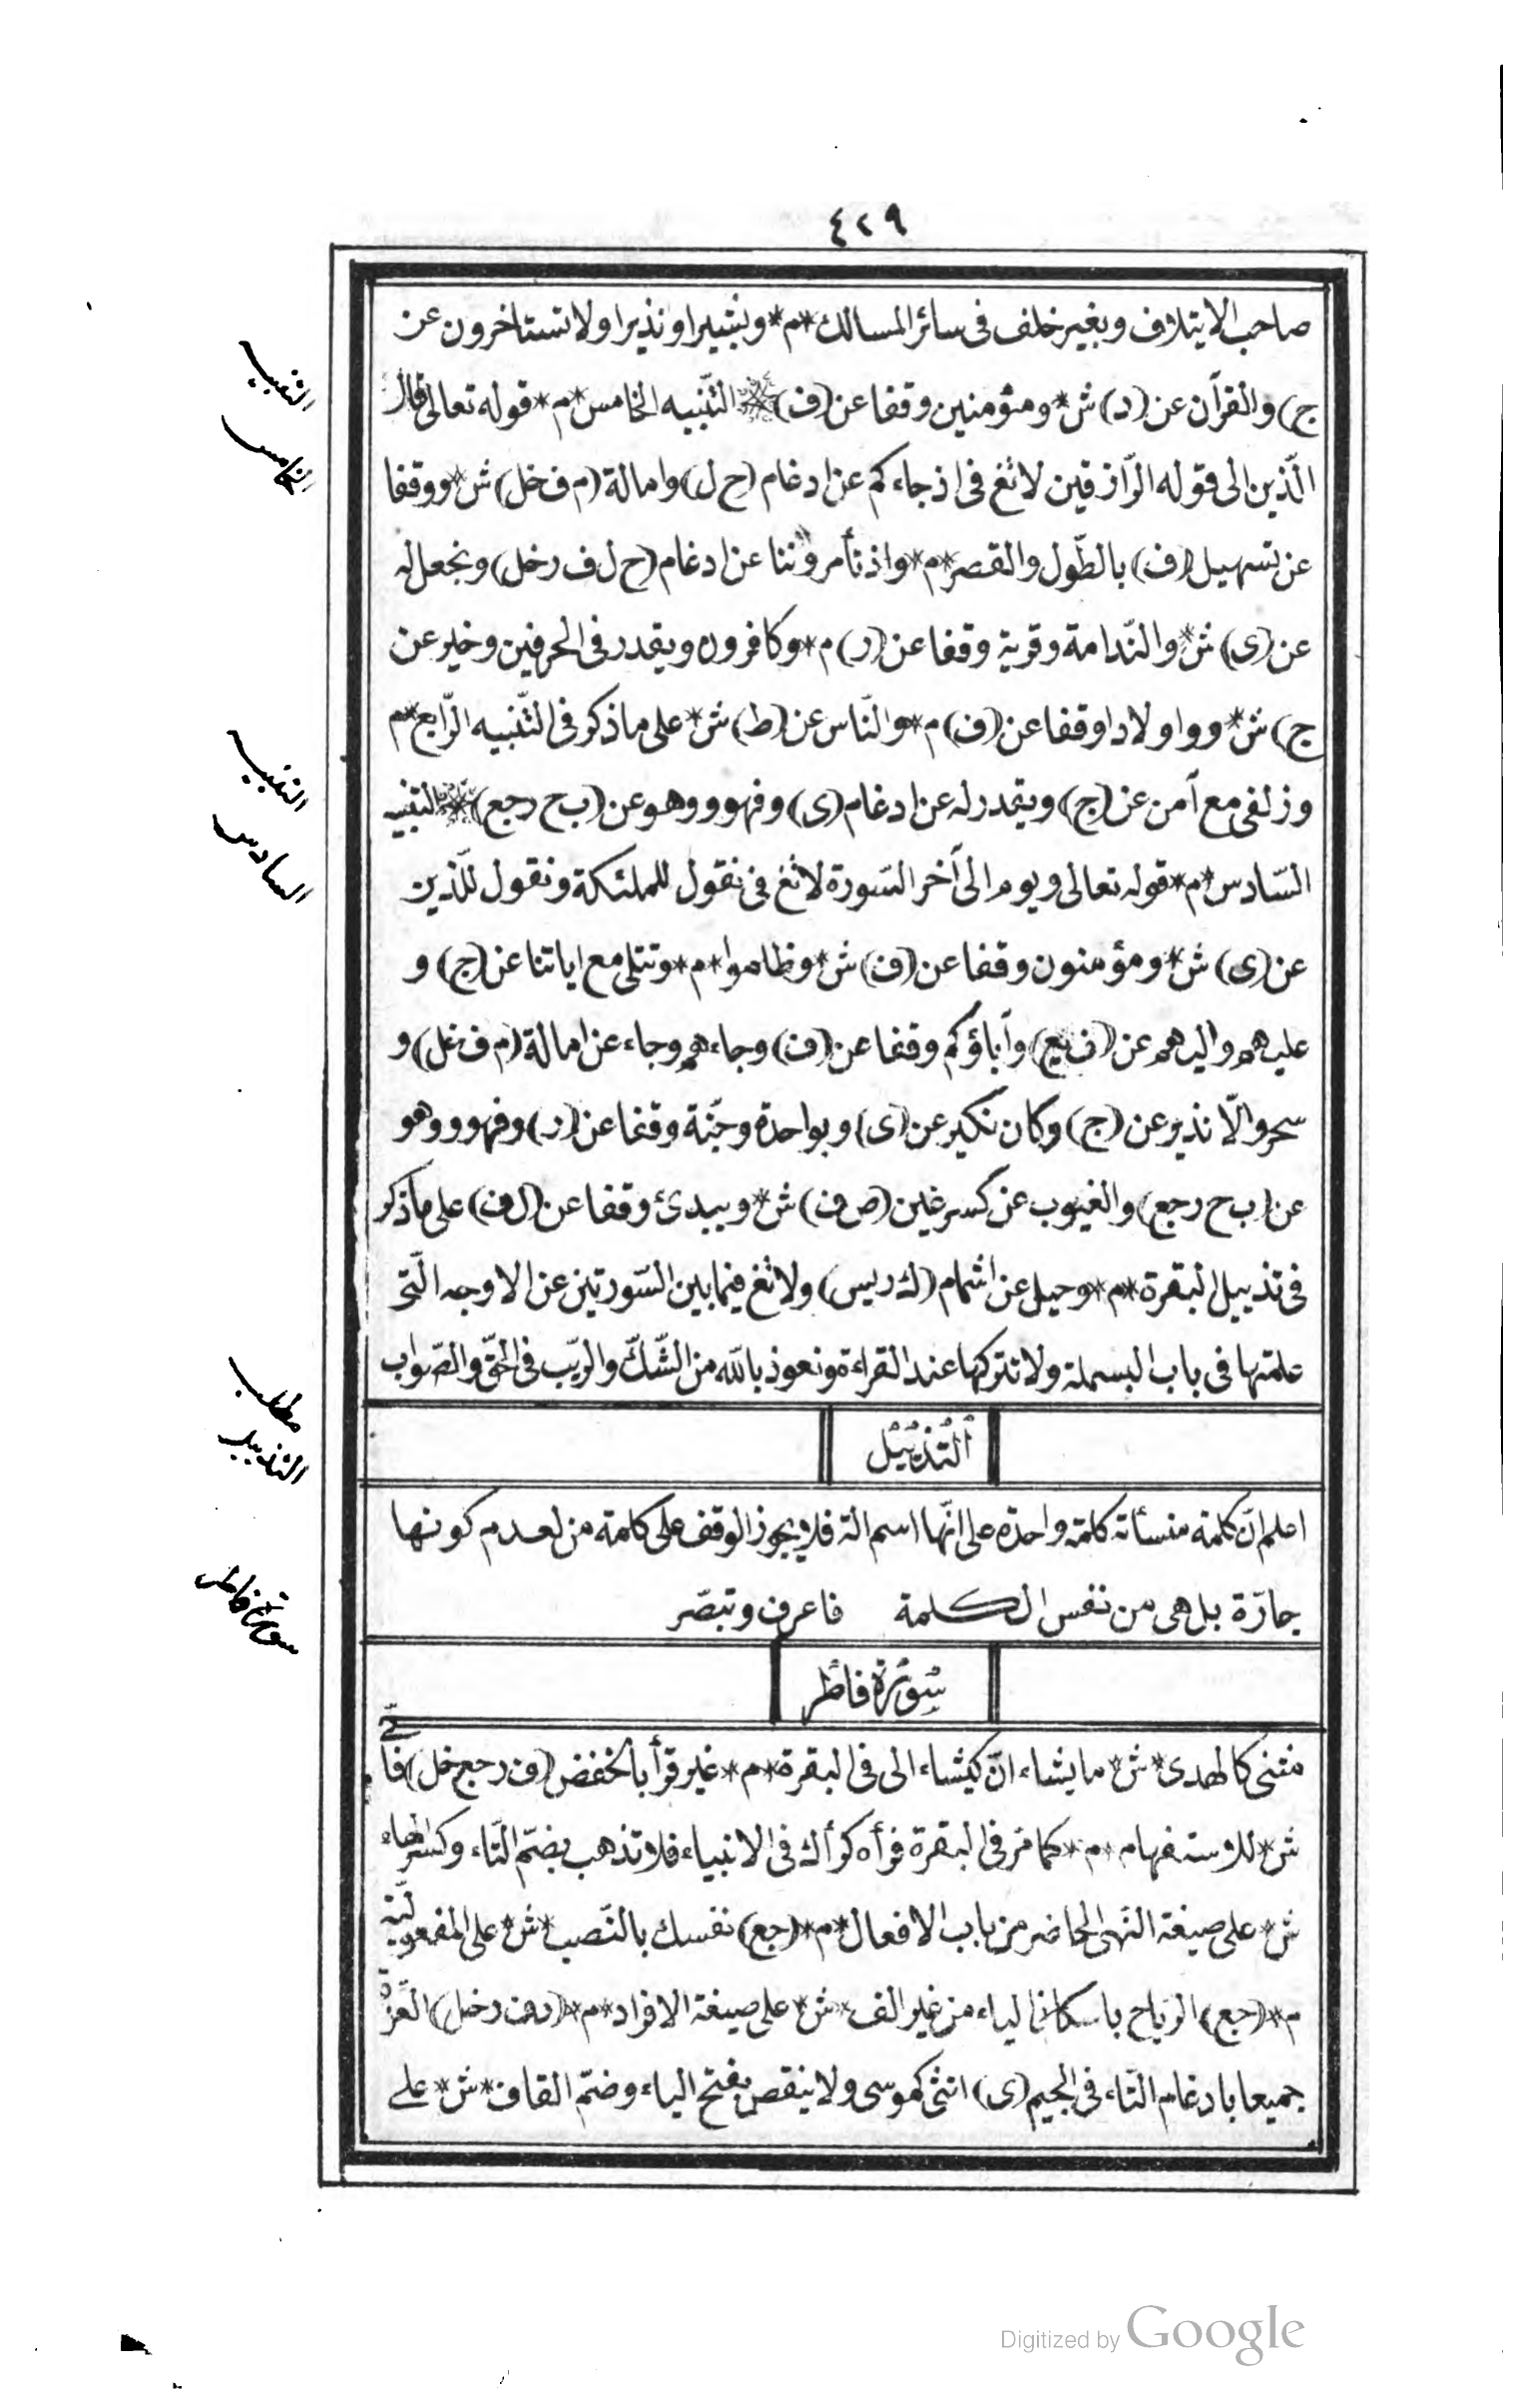 ٤٢٩
صاحب الايتلاف وبغير خلف فى سائر المسالك *م* وبشيرا ونذيرا ولا تستاخرون عن
ج) والقرآن عن (د) ش* ومؤمنين وقفا عن (ف) * التّنبيه الخامس *م* قوله تعالى قال
الّذين الى قوله الرّازقين لا تغ فى اذ جاءكم عن ادغام (ح ل) وامالة (م ف خل) ش* ووقفا
عن تسهيل (ف) بالطّول والقصر *م* واذ تأمروننا عن ادغام (ح ل ف رخل) ونجعل له
عن (ى) ش* والنّدامة وقرية وقفا عن (ر) م* وكافرون ويقدر فى الحرفين وخير عن
ج) ش* وواولادا وقفا عن (ف) م* والنّاس عن (ط) ش* على ما ذكر فى التّنبيه الرّابع *م
وزلفى مع آمن عن (ج) ويقدر له عن ادغام (ى) وفهو ووهو عن (ب ح رجع) * التنبيه
السّادس *م* قوله تعالى ويوم الى آخر السّورة لا تغ فى نقول للملئكة ونقول للّذين
عن (ى) ش* ومؤمنون وقفا عن (ف) ش* وظلموا *م* وتتلى مع اياتنا عن (ج) و
عليهم واليهم عن (ف يع) وآباؤكم وقفا عن (ف) وجاءهم وجاء عن امالة (م ف خل) و
سحر والّا نذير عن (ج) وكان نكير عن (ى) وبواحدة وجنّة وقفا عن (ر) وفهو ووهو
عن (ب ح رجع) والغيوب عن كسر غين (ص ف) ش* ويبدئ وقفا عن (ل ف) على ما ذكر
فى تذييل البقرة *م* وحيل عن اشمام (ك ر يس) ولا تغ فيما بين السّورتين عن الاوجه الّتى
علمتها فى باب البسملة ولا تتركها عند القراءة ونعوذ بالله من الشّكّ والرّيب فى الحقّ والصّواب
التّذييل
اعلم انّ كلمة منسأته كلمة واحدة على انّها اسم الة فلا يجوز الوقف على كلمة من لعدم كونها
جارّة بل هى من نفس الكلمة فاعرف وتبصّر
سورة فاطر
مثنى كالهدى *ش* ما يشاء انّ كيشاء الى فى البقرة *م* غير قرأ بالخفض (ف رجع خل) فأنّى
ش* للاستفهام *م* كما مرّ فى البقرة فرأه كرأك فى الانبياء فلا تذهب بضمّ التّاء وكسر الهاء
ش* على صيغة النّهى الحاضر من باب الافعال *م* (جع) نفسك بالنّصب *ش* على المفعوليّة
م* (جع) الرّياح باسكان الياء من غير الف *ش* على صيغة الافراد *م* (د ف رخل) العزّة
جميعا بادغام التّاء فى الجيم (ى) انثى كموسى ولا ينقص بفتح الياء وضمّ القاف *ش* على
التنبيه
الخامس
التنبيه
السادس
مطلب
التذييل
سورة فاطر
Digitized by Google